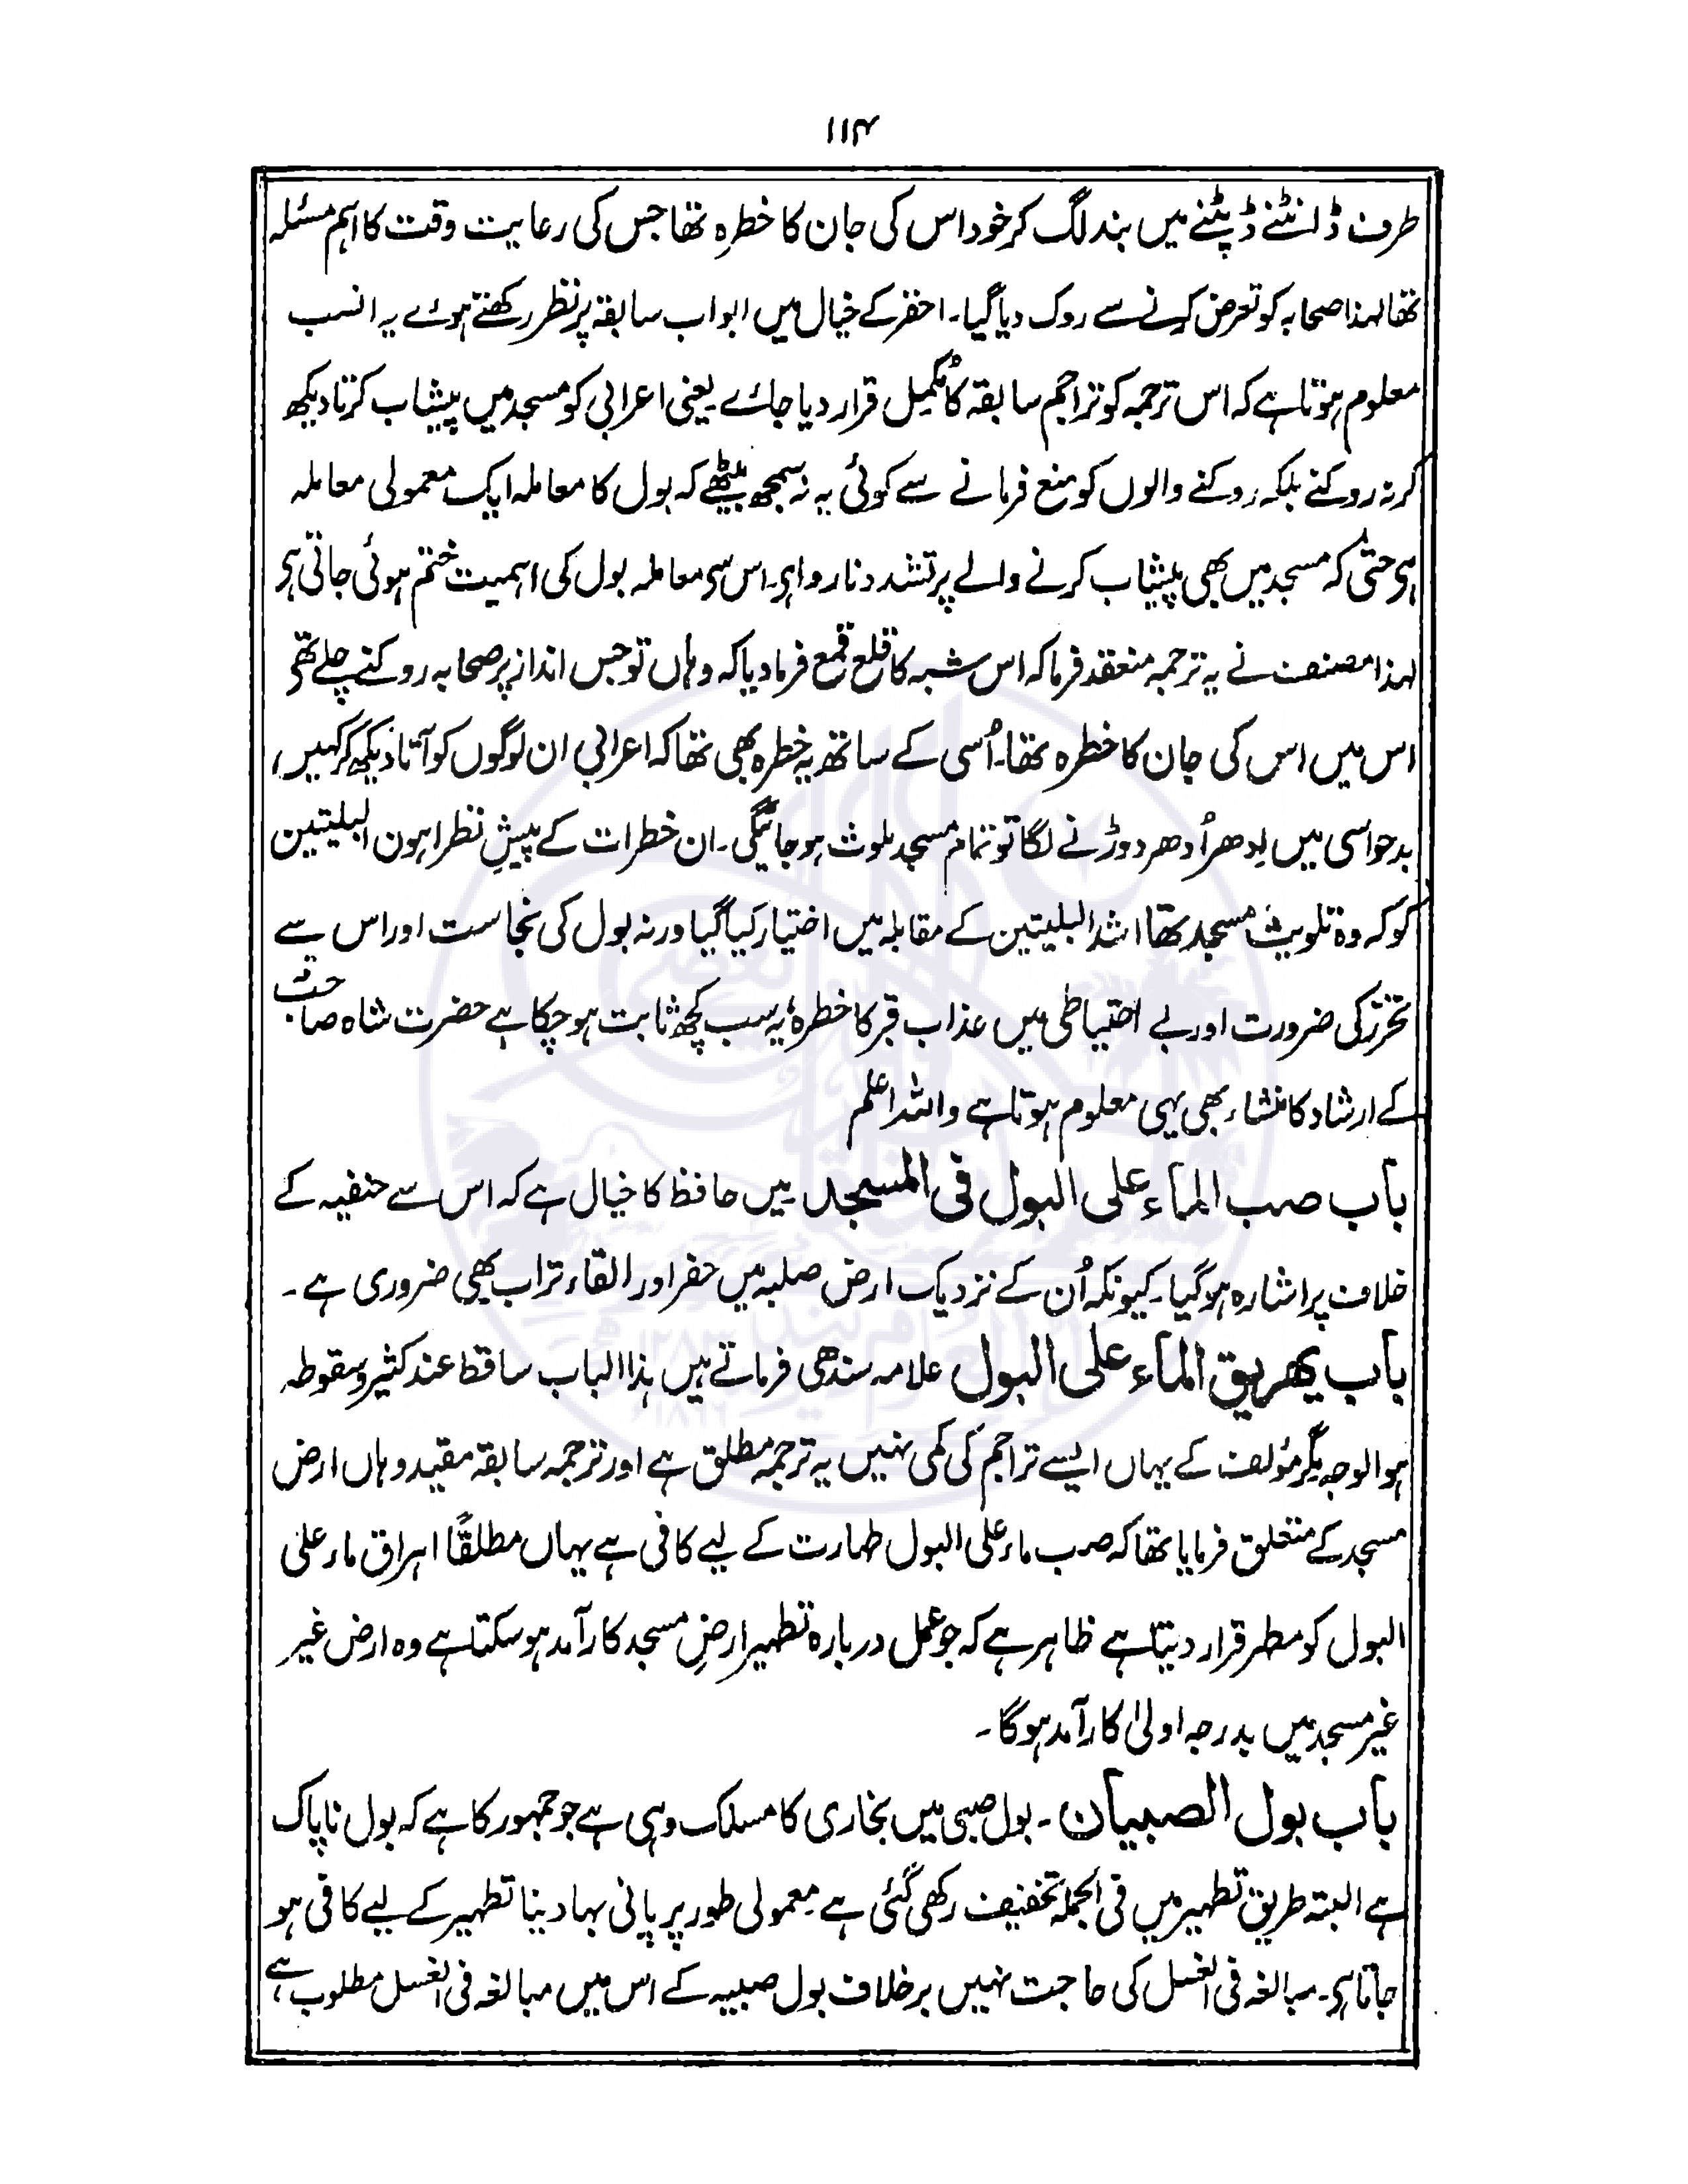 ۱۱۴
طرف ڈانٹنے ڈپٹنے میں بند لگ کر خود اس کی جان کا خطرہ تھا جس کی رعایت وقت کا اہم مسئلہ
تھا لہذا صحابہ کو تعرض کرنے سے روک دیا گیا۔ احقر کے خیال میں ابواب سابقہ پر نظر رکھتے ہوئے یہ انسب
معلوم ہوتا ہے کہ اس ترجمہ کو تراجم سابقہ کا مکمیل قرار دیا جائے یعنی اعرابی کو مسجد میں پیشاب کرتا دیکھ
کر نہ روکنے بلکہ روکنے والوں کو منع فرمانے سے کوئی یہ نہ سمجھ بیٹھے کہ بول کا معاملہ ایک معمولی معاملہ
ہی حتیٰ کہ مسجد میں بھی پیشاب کرنے والے پر تشدد ناروا ہی۔ اس سی معاملہ بول کی اہمیت ختم ہوئی جاتی ہی
لہذا مصنف نے یہ ترجمہ منعقد فرما کہ اس شبہ کا قلع قمع فرما دیا کہ وہاں تو جس انداز پر صحابہ روکنے چلے تھے
اس میں اس کی جان کا خطرہ تھا۔ اُسی کے ساتھ یہ خطرہ بھی تھا کہ اعرابی ان لوگوں کو آتا دیکھ کر کہیں،
بدحواسی میں اِدھر اُدھر دوڑنے لگا تو تمام مسجد ملوث ہو جائیگی۔ ان خطرات کے پیشِ نظر اہون البلیتین
کو کہ وہ تلویث مسجد تھا اشد البلیتین کے مقابلہ میں اختیار کیا گیا ورنہ بول کی نجاست اور اس سے
تحرز کی ضرورت اور بے احتیاطی میں عذاب قبر کا خطرہ یہ سب کچھ ثابت ہو چکا ہے حضرت شاہ صاحب
کے ارشاد کا منشاء بھی یہی معلوم ہوتا ہے واللہ اعلم
باب صب الماء علی البول فی المسجد میں حافظ کا خیال ہے کہ اس سے حنفیہ کے
خلاف پر اشارہ ہو گیا۔ کیونکہ اُن کے نزدیک ارض صلبہ میں حفر اور القاء تراب بھی ضروری ہے۔
باب یھریق الماء علی البول علامہ سندھی فرماتے ہیں ہذا الباب ساقط عند کثیر وسقوطہ
ہو الوجہ مگر مؤلف کے یہاں ایسے تراجم کی کمی نہیں یہ ترجمہ مطلق ہے اور ترجمہ سابقہ مقید وہاں ارض
مسجد کے متعلق فرمایا تھا کہ صب ماء علی البول طہارت کے لیے کافی ہے یہاں مطلقًا اہراق ماء علی
البول کو مطہر قرار دیتا ہے ظاہر ہے کہ جو عمل دربارہ تطہیر ارضِ مسجد کارآمد ہو سکتا ہے وہ ارض غیر
غیر مسجد میں بدرجہ اولیٰ کارآمد ہو گا۔
باب بول الصبیان۔ بول صبی میں بخاری کا مسلک وہی ہے جو جمہور کا ہے کہ بول ناپاک
ہے البتہ طریق تطہیر میں فی الجملہ تخفیف رکھی گئی ہے معمولی طور پر پانی بہا دینا تطہیر کے لیے کافی ہو
جاتا ہی۔ مبالغہ فی الغسل کی حاجت نہیں برخلاف بول صبیہ کے اس میں مبالغہ فی الغسل مطلوب ہے